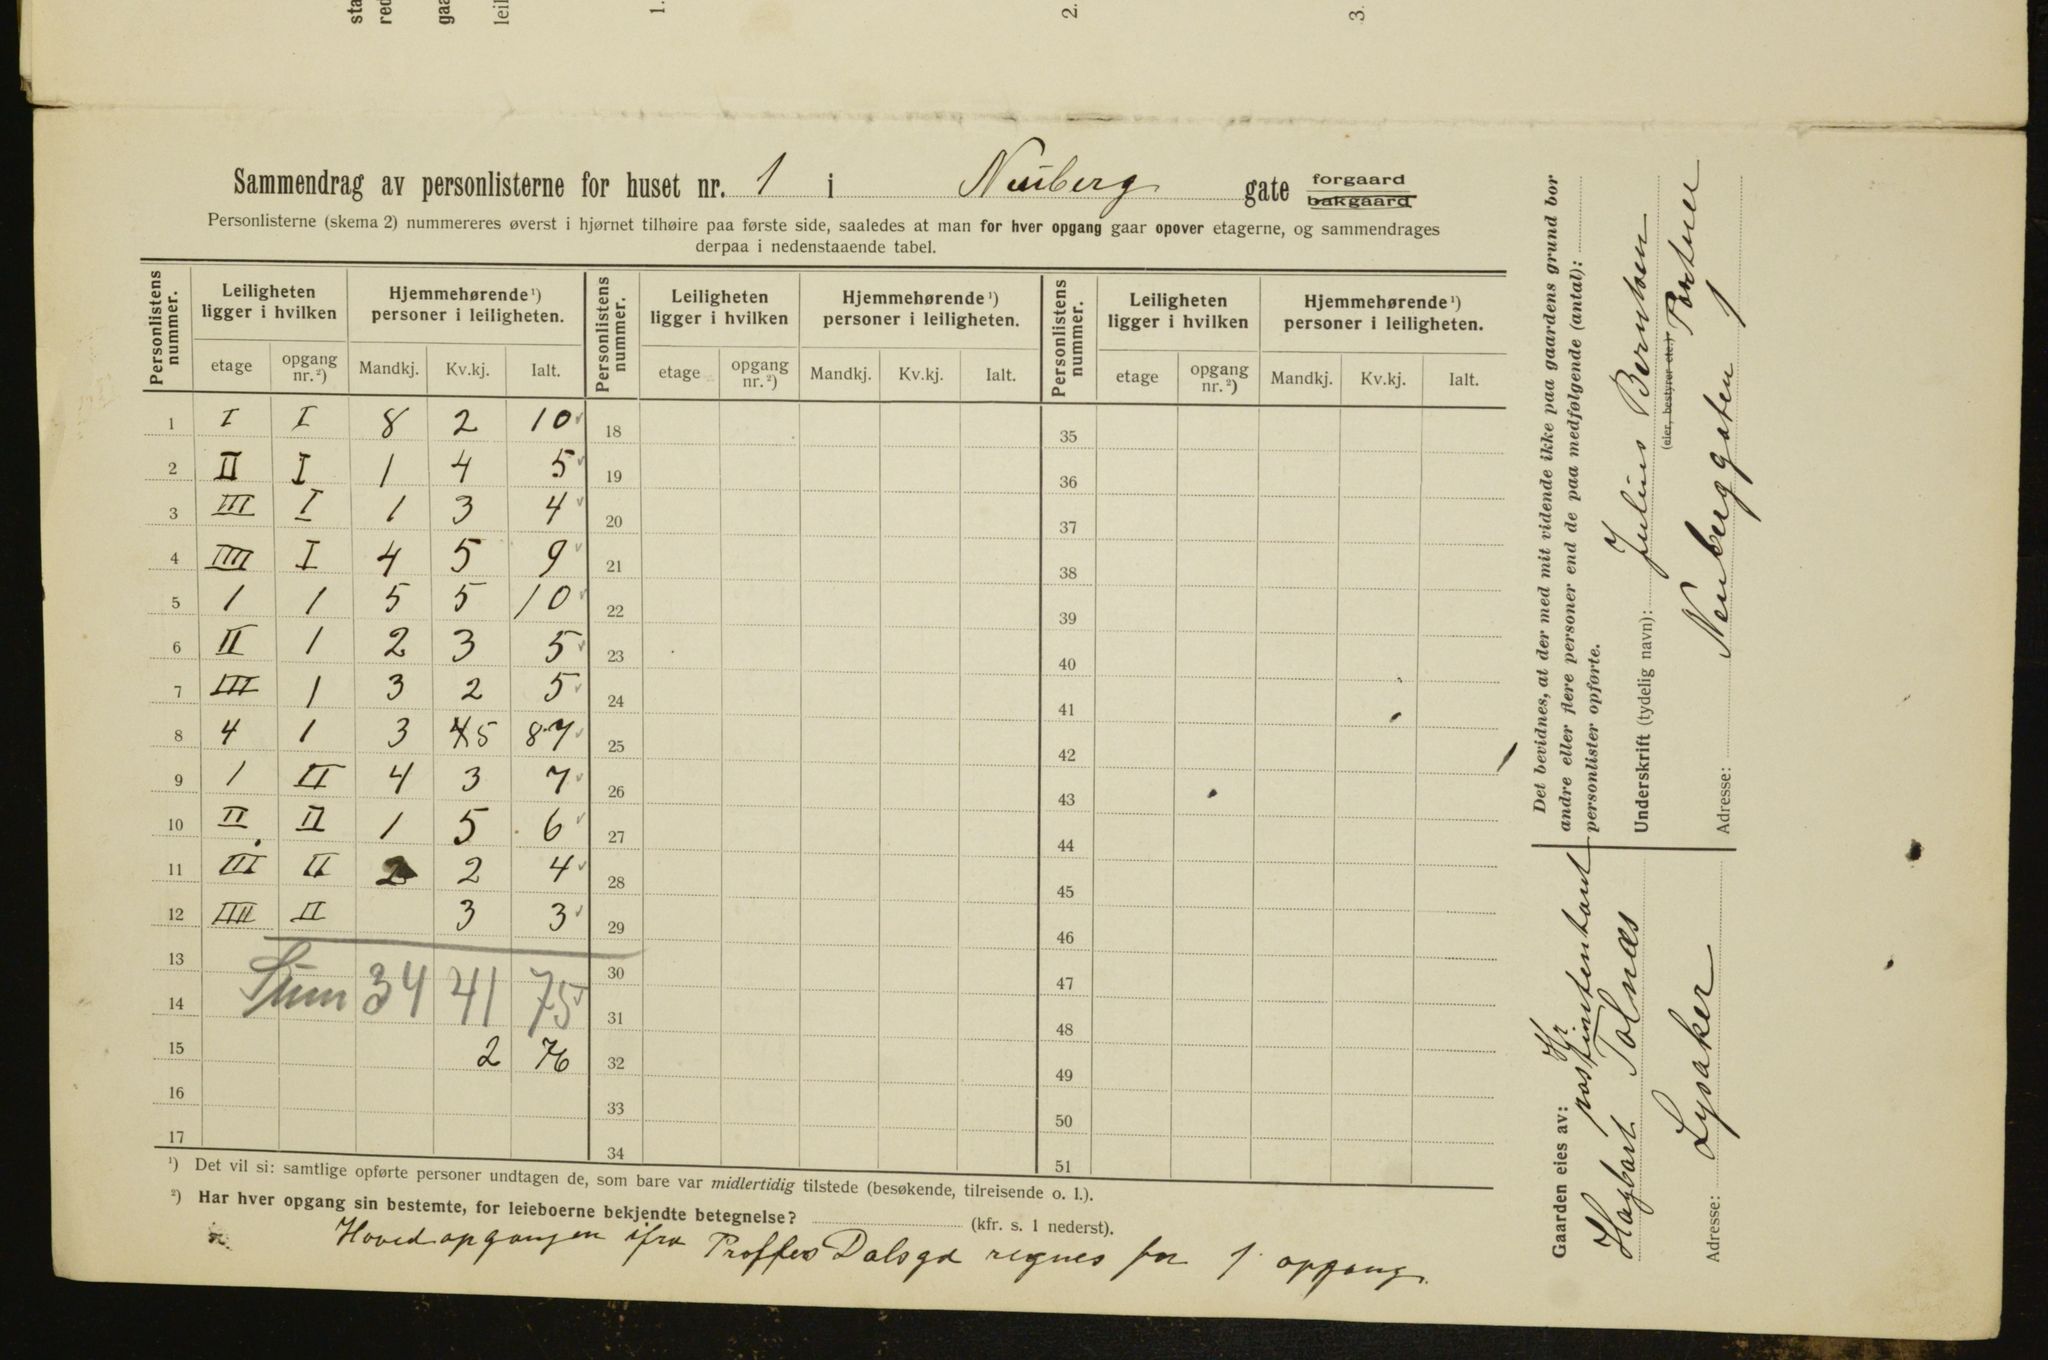 sta
red
gaa
leil
1.
2.
3.
Sammendrag av personlisterne for huset nr. 1 i Neuberg gate forgaard bakgaard
Personlisterne (skema 2) nummereres øverst i hjørnet tilhøire paa første side, saaledes at man for hver opgang gaar opover etagerne, og sammendrages
derpaa i nedenstaaende tabel.
Personlistens nummer. Leiligheten ligger i hvilken Hjemmehørende ¹) personer i leiligheten. Personlistens nummer. Leiligheten ligger i hvilken Hjemmehørende ¹) personer i leiligheten. Personlistens nummer. Leiligheten ligger i hvilken Hjemmehørende ¹) personer i leiligheten.
etage opgang nr. ²) Mandkj. Kv.kj. Ialt. etage opgang nr. ²) Mandkj. Kv.kj. Ialt. etage opgang nr. ²) Mandkj. Kv.kj. Ialt.
1 I I 8 2 10 18 35
2 II I 1 4 5 19 36
3 III I 1 3 4 20 37
4 IIII I 4 5 9 21 38
5 1 1 5 5 10 22 39
6 II 1 2 3 5 23 40
7 III 1 3 2 5 24 41
8 4 1 3 4 5 8 7 25 42
9 1 II 4 3 7 26 43
10 II II 1 5 6 27 44
11 III II 2 2 4 28 45
12 IIII II 3 3 29 46
13 30 47
14 Sum 34 41 75 31 48
15 2 76 32 49
16 33 50
17 34 51
¹) Det vil si: samtlige opførte personer undtagen de, som bare var midlertidig tilstede (besøkende, tilreisende o. l.).
²) Har hver opgang sin bestemte, for leieboerne bekjendte betegnelse? (kfr. s. 1 nederst).
Hovedopgangen ifra Proffes Dalsgd regnes for 1 opgang.
Det bevidnes, at der med mit vidende ikke paa gaardens grund bor
andre eller flere personer end de paa medfølgende (antal):
personlister opførte.
Underskrift (tydelig navn): Julius Berntsen
(eier, bestyrer etc.) Portner
Adresse: Neuberggaten 1
Gaarden eies av: Hr
postintentant
Hagbart Tolnæs
Adresse: Lysaker